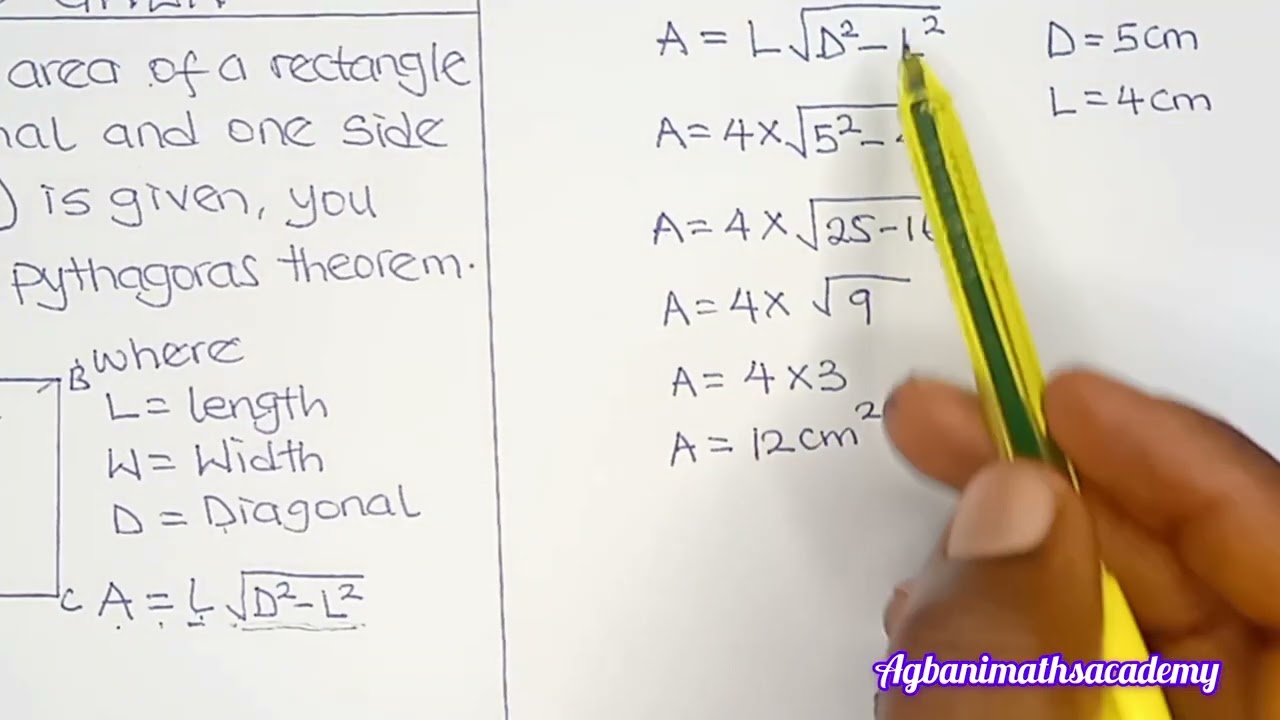 area of a rectangle
and one side
is given, you
pythagoras theorem.
B where
L = length
W = Width
D = Diagonal
C A = L √D²-L²
A = L √D² - L²
A = 4 × √5² -
A = 4 × √25-16
A = 4 × √9
A = 4 × 3
A = 12cm²
D = 5cm
L = 4cm
Agbanimathsacademy